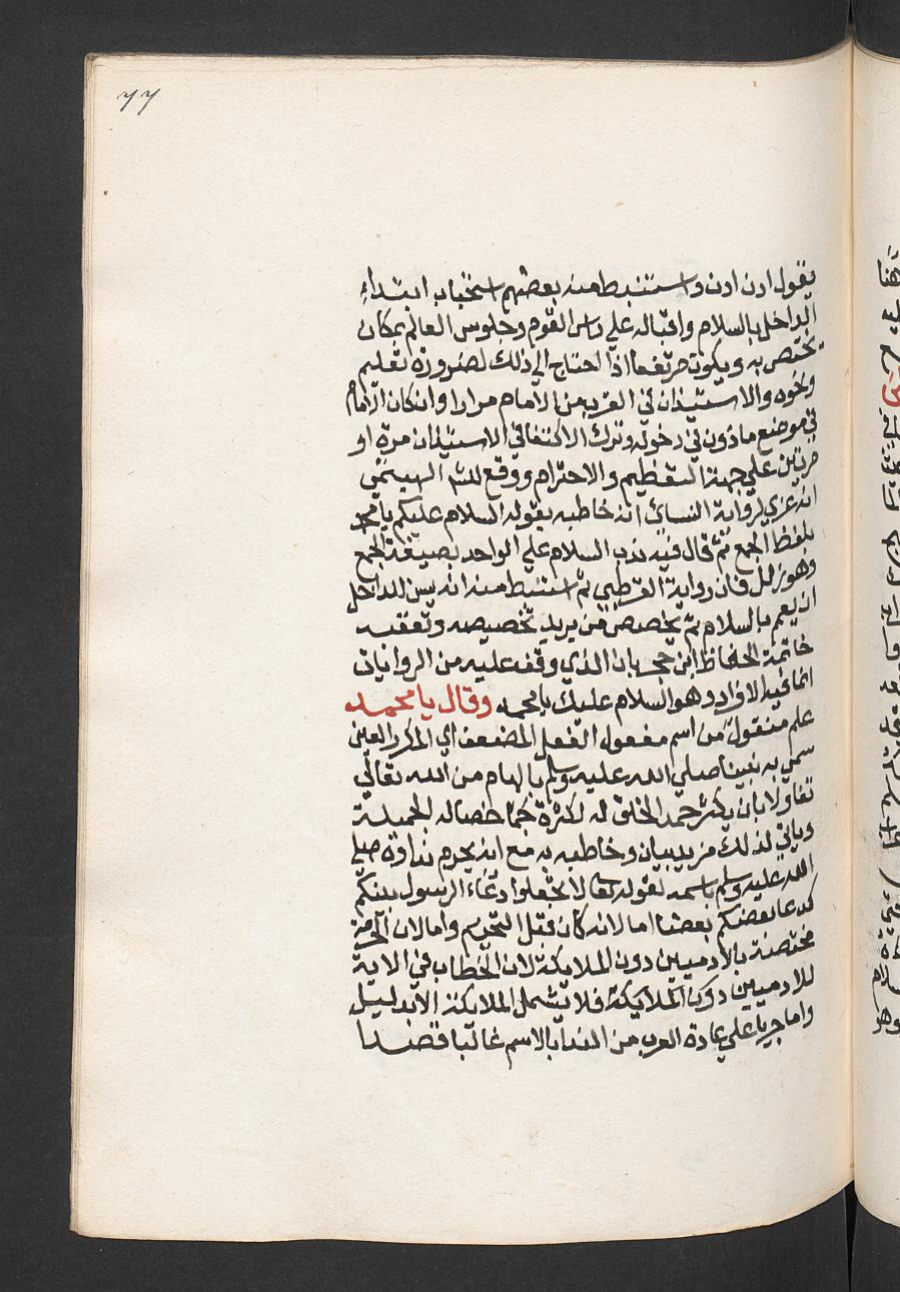 ٧٧
يقول ادن ادن واستنبط منه بعضهم استحباب ابتداء
الداخل بالسلام واقباله علي راس القوم وجلوس العالم بمكان
يختص به ويكون مرتفعا اذا احتاج الي ذلك لضرورة تعليم
ونحوه والاستيذان في القرب من الامام مرارا وان كان الامام
في موضع ماذون في دخوله وترك الاكتفا في الاستيذان مرة او
مرتين علي جهة التعظيم والاحترام ووقع للشه الهيتمي
انه عزي لرواية النسائي انه خاطبه بقوله السلام عليكم يا محمد
بلفظ الجمع ثم قال فيه ندب السلام علي الواحد بصيغة الجمع
وهو زلل فان رواية القرطبي ثم استنبط منه انه يسن للداخل
ان يعم بالسلام ثم يخصص من يريد تخصيصه وتعقبه
خاتمة الحفاظ ابن حجر بان الذي وقف عليه من الروايات
انما فيه الافراد وهو السلام عليك يا محمد وقال يا محمد
علم منقول من اسم مفعول الفعل المضعف اي المكرر العين
سمي به نبينا صلي الله عليه وسلم بالهام من الله تعالي
تفاولا بان يكثر حمد الخلق له لكثرة خصاله الجميلة
وياتي لذلك مزيد بيان وخاطبه به مع انه يحرم نداوه صلي
الله عليه وسلم باسمه لقوله تعالي لا تجعلوا دعاء الرسول بينكم
كدعا بعضكم بعضا اما لانه كان قبل التحريم واما لان الحرمة
مختصة بالادميين دون الملايكة لان الخطاب في الاية
للادميين دون الملايكة فلا يشمل الملايكة الا بدليل
واما جريا علي عادة العرب من الندا بالاسم غالبا قصدا